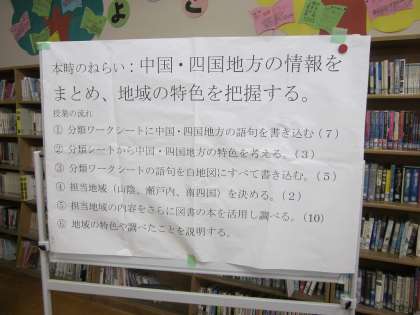 本時のねらい：中国・四国地方の情報を
まとめ、地域の特色を把握する。
授業の流れ
① 分類ワークシートに中国・四国地方の語句を書き込む（７）
② 分類シートから中国・四国地方の特色を考える。（３）
③ 分類ワークシートの語句を白地図にすべて書き込む。（５）
④ 担当地域（山陰、瀬戸内、南四国）を決める。（２）
⑤ 担当地域の内容をさらに図書の本を活用し調べる。（10）
⑥ 地域の特色や調べたことを説明する。